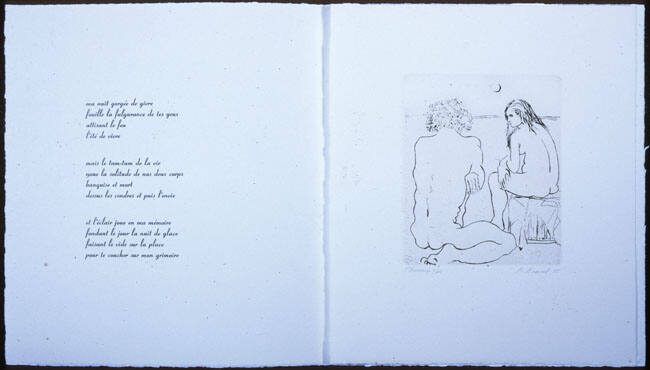 ma nuit gorgée de givre
fouille la fulgurance de tes yeux
attisant le feu
l'été de vivre
mais le tam-tam de la vie
noue la solitude de nos deux corps
banquise et mort
dessus les cendres et puis l'envie
et l'éclair joue en ma mémoire
fondant le jour la nuit de glace
faisant le vide sur la place
pour te coucher sur mon grimoire